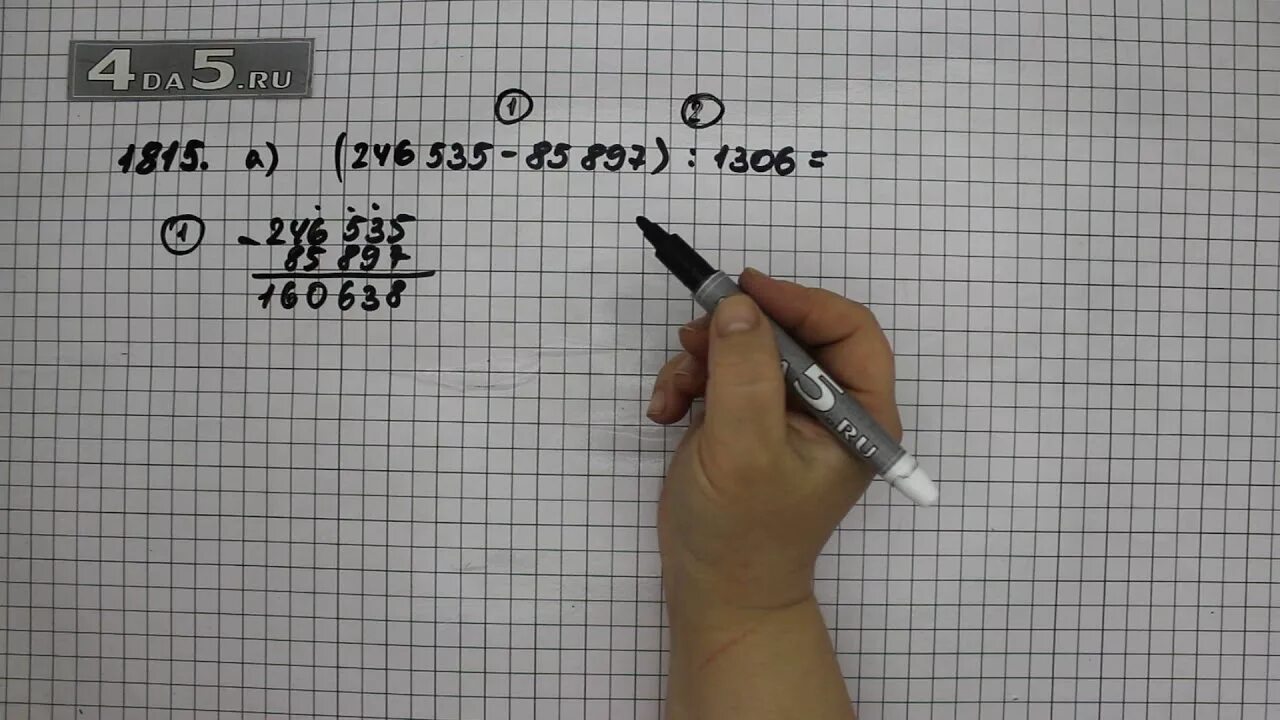 4DA5.RU
① ②
1815. а) (246 535 - 85 897) : 1306 =
① - 246 535
85 897
160 638
5.RU